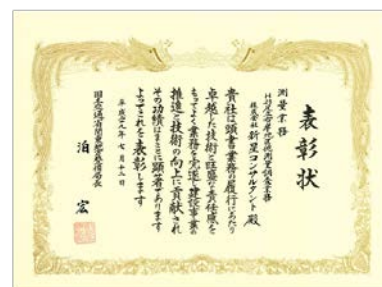 表彰状
測量業務
株式会社 新星コンサルタント 殿
貴社は頭書業務の履行にあたり
卓越した技術と旺盛な責任感を
もってよく業務を完遂し建設事業の
推進と技術の向上に貢献され
その功績はまことに顕著であります
よってこれを表彰します
平成二十九年 七月十二日
国土交通省関東地方整備局長
泊 宏